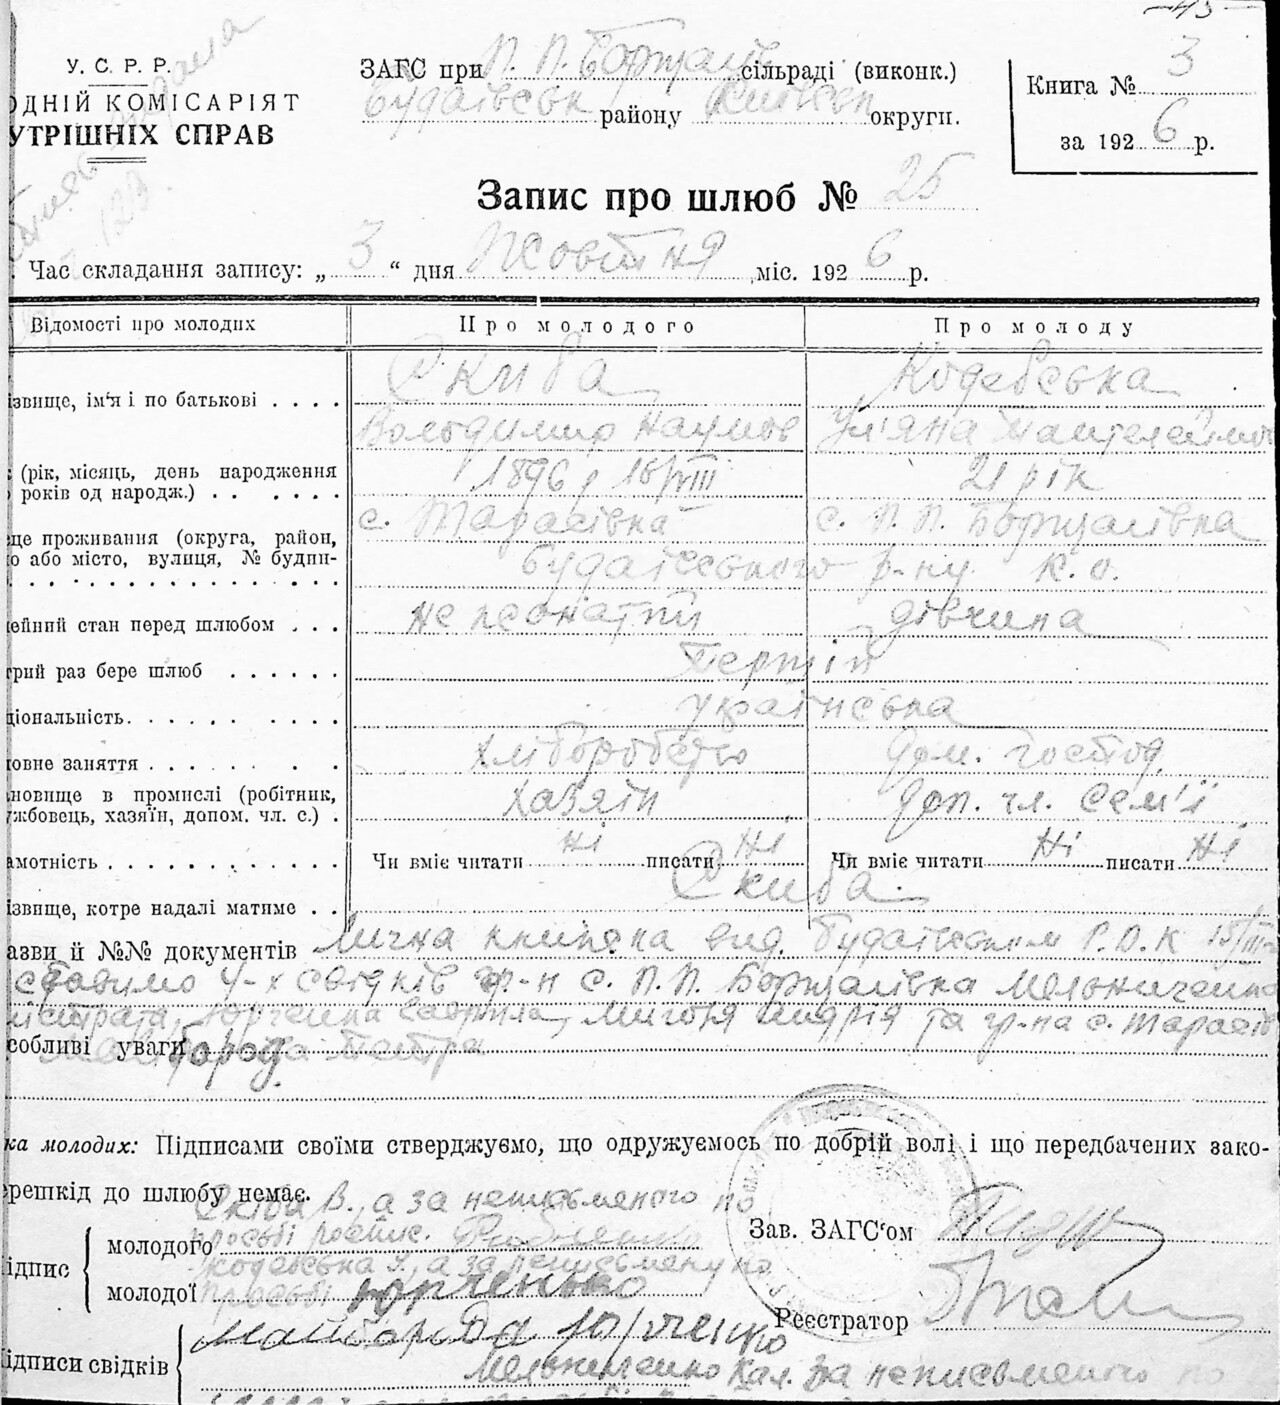 43
У. С. Р. Р.
ОДНІЙ КОМІСАРІЯТ
УТРІШНІХ СПРАВ
ЗАГС при П. П. Борщагів сільраді (виконк.)
Будаївськ району Київськ округи.
Книга № 3
за 1926 р.
Запис про шлюб № 25
Час складання запису: „3“ дня Жовтня міс. 1926 р.
Відомості про молодих
Про молодого
Про молоду
ізвище, ім'я і по батькові . . . .
Скиба
Володимир Наумов
Кодебська
Ул'яна Пантелеймон
(рік, місяць, день народження
років од народж.) . . . . . .
1896 р 15/VIII
21 рік
ще проживання (округа, район,
о або місто, вулиця, № будин-
с. Тарасівка
с. П. П. Борщагівка
Будаївського р-ну К. о.
ейний стан перед шлюбом . . .
не жонатий
дівчина
трий раз бере шлюб . . . . . .
перший
ціональність. . . . . . . . . .
українська
овне заняття . . . . . . . .
хліборобство
Дом. господ.
новище в промислі (робітник,
жбовець, хазяїн, допом. чл. с.) .
хазяїн
Доп. чл. сем'ї
амотність . . . . . . . . . . . .
Чи вміє читати ні писати ні
Чи вміє читати ні писати ні
ізвище, котре надалі матиме . .
Скиба
азви й №№ документів Лична книжка вид. Будаївським Р. В. К 15/III
свідків гр-н с. П. П. Борщагівка Мельниченка
Юрченка Гаврила, Андрія та гр-на с. Тарасів
собливі уваги
Майборода Петра
ка молодих: Підписами своїми стверджуємо, що одружуємось по добрій волі і що передбачених зако-
решкід до шлюбу немає.
Скиба В., а за неписьменого по
молодого просьбі роспис.
Кодебська У., а за неписьмену по
ідпис
молодої просьбі Юрченко
Зав. ЗАГС'ом
Реєстратор
ідписи свідків
Майборода Юрченко
Мельниченко Кал. За неписьменого по